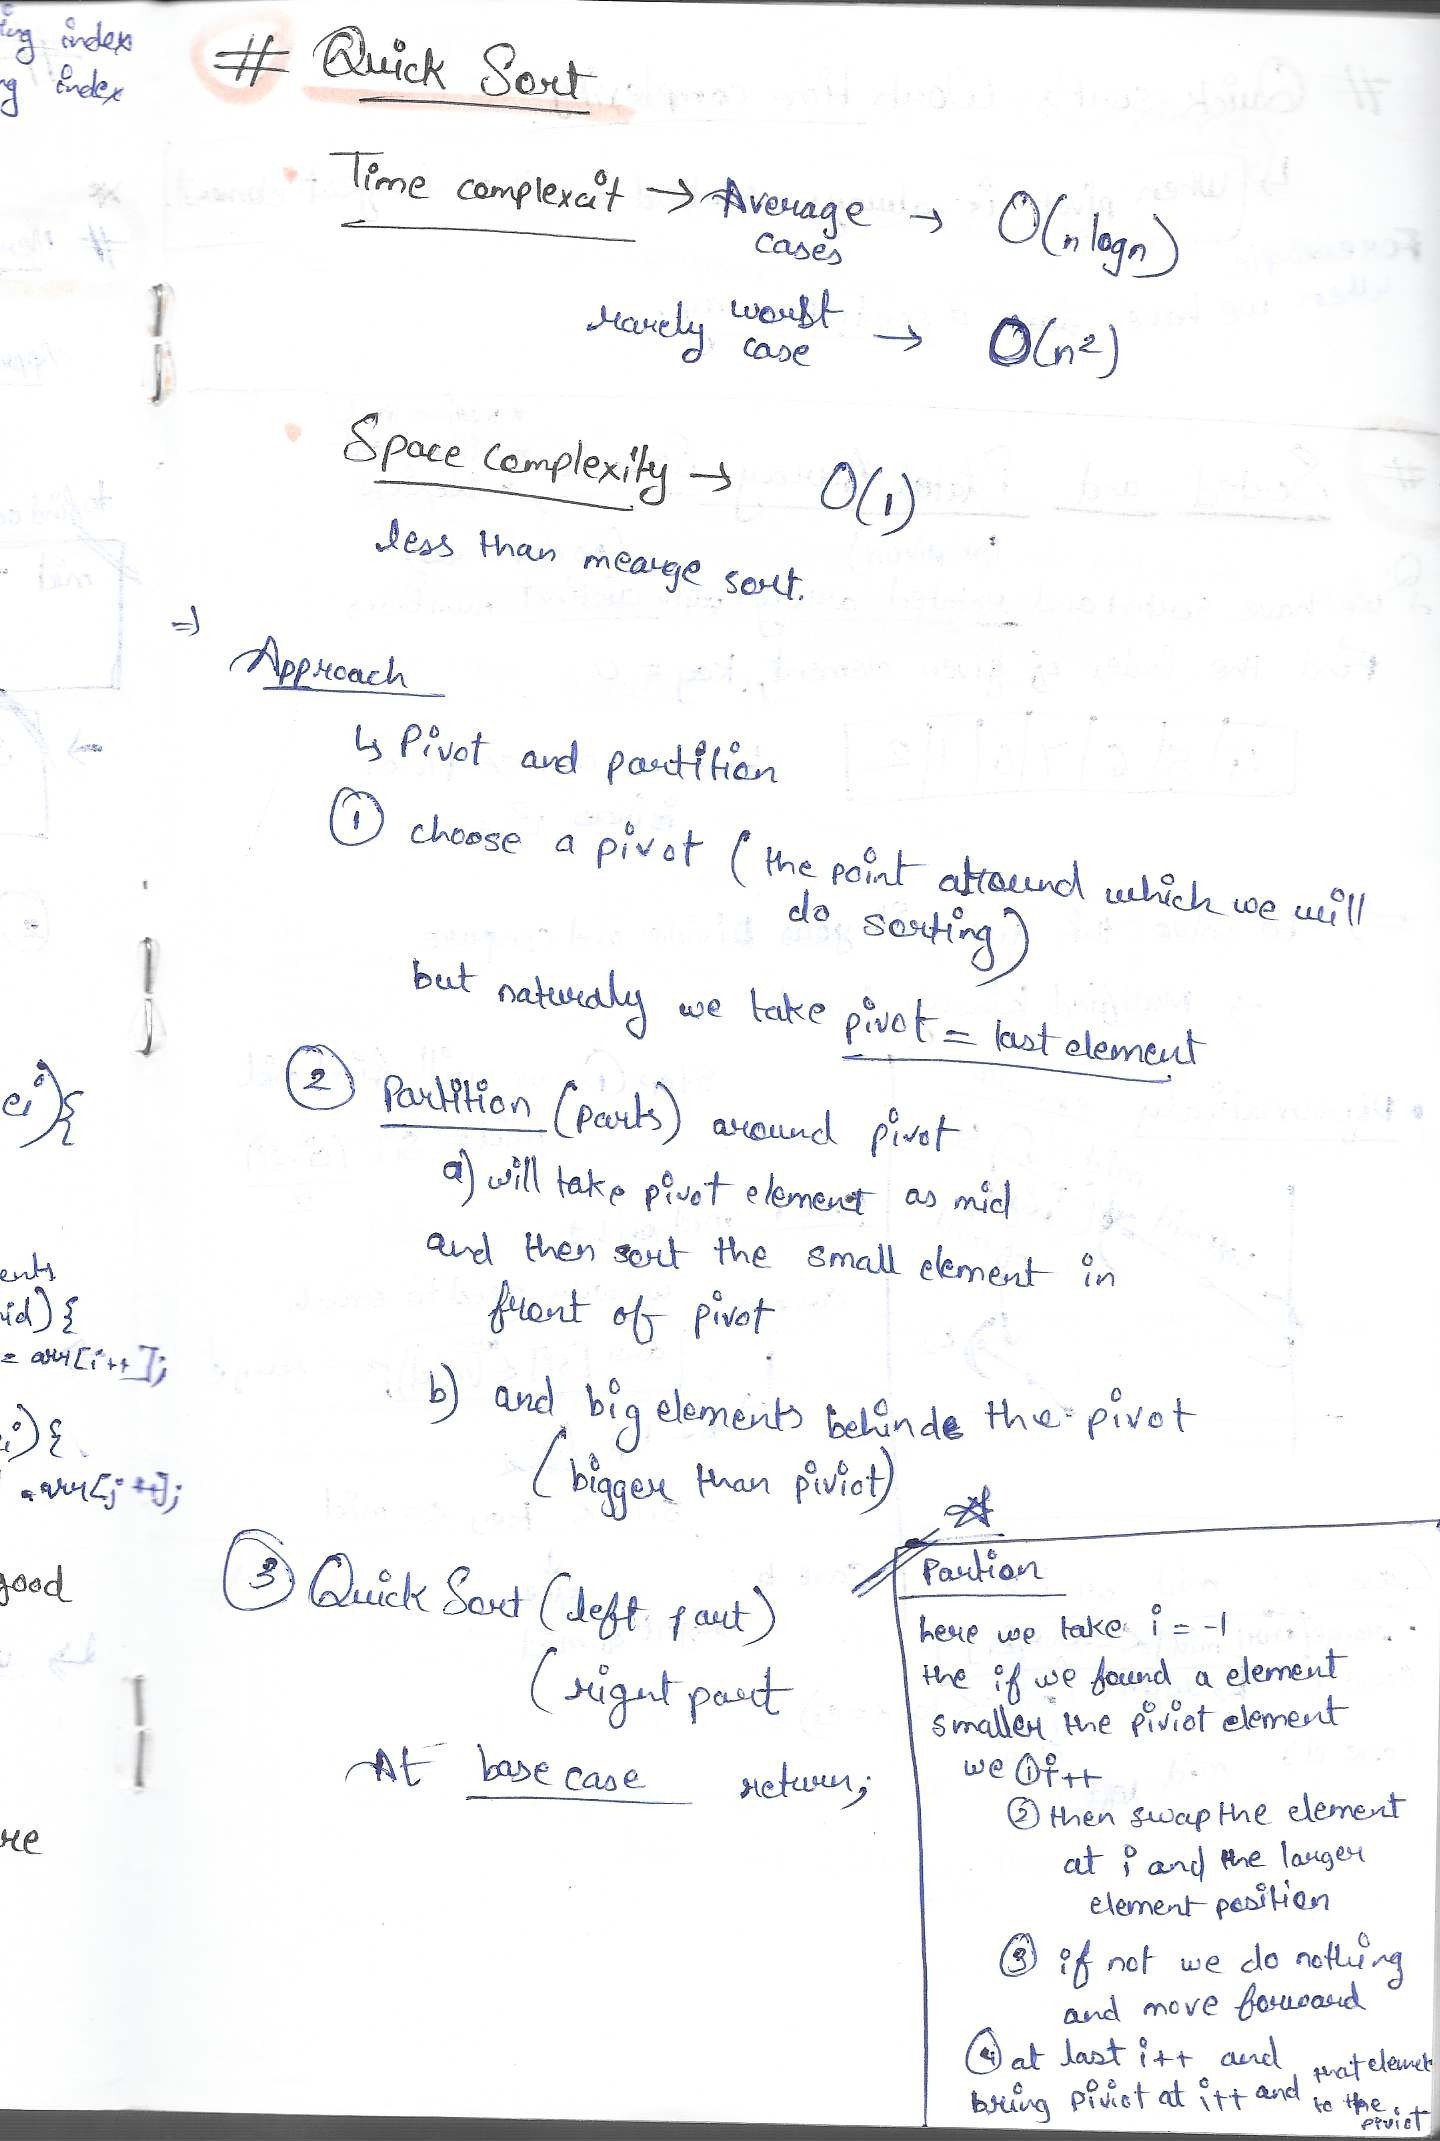 ing index
ng index
# Quick Sort
Time complexcit → Average cases → O(n logn)
rarely worst case → O(n2)
Space complexity → O(1)
less than mearge sort.
⇒
Approach
↳ Pivot and partition
① choose a pivot (the point around which we will
do sorting)
but naturaly we take pivot = last element
② Partition (parts) around pivot
a) will take pivot element as mid
and then sort the small element in
front of pivot
b) and big elements behinde the pivot
(bigger than piviot)
③ Quick Sort (left part)
(right part
At base case return;
Partion
here we take i = -1
the if we found a element
smaller the piviot element
we ① i++
② then swap the element
at i and the larger
element position
③ if not we do nothing
and move forward
④ at last i++ and that elemet
bring piviot at i++ and to the piviot
ei){
ents
id) {
= arr[i++];
i) {
arr[j++];
good
re